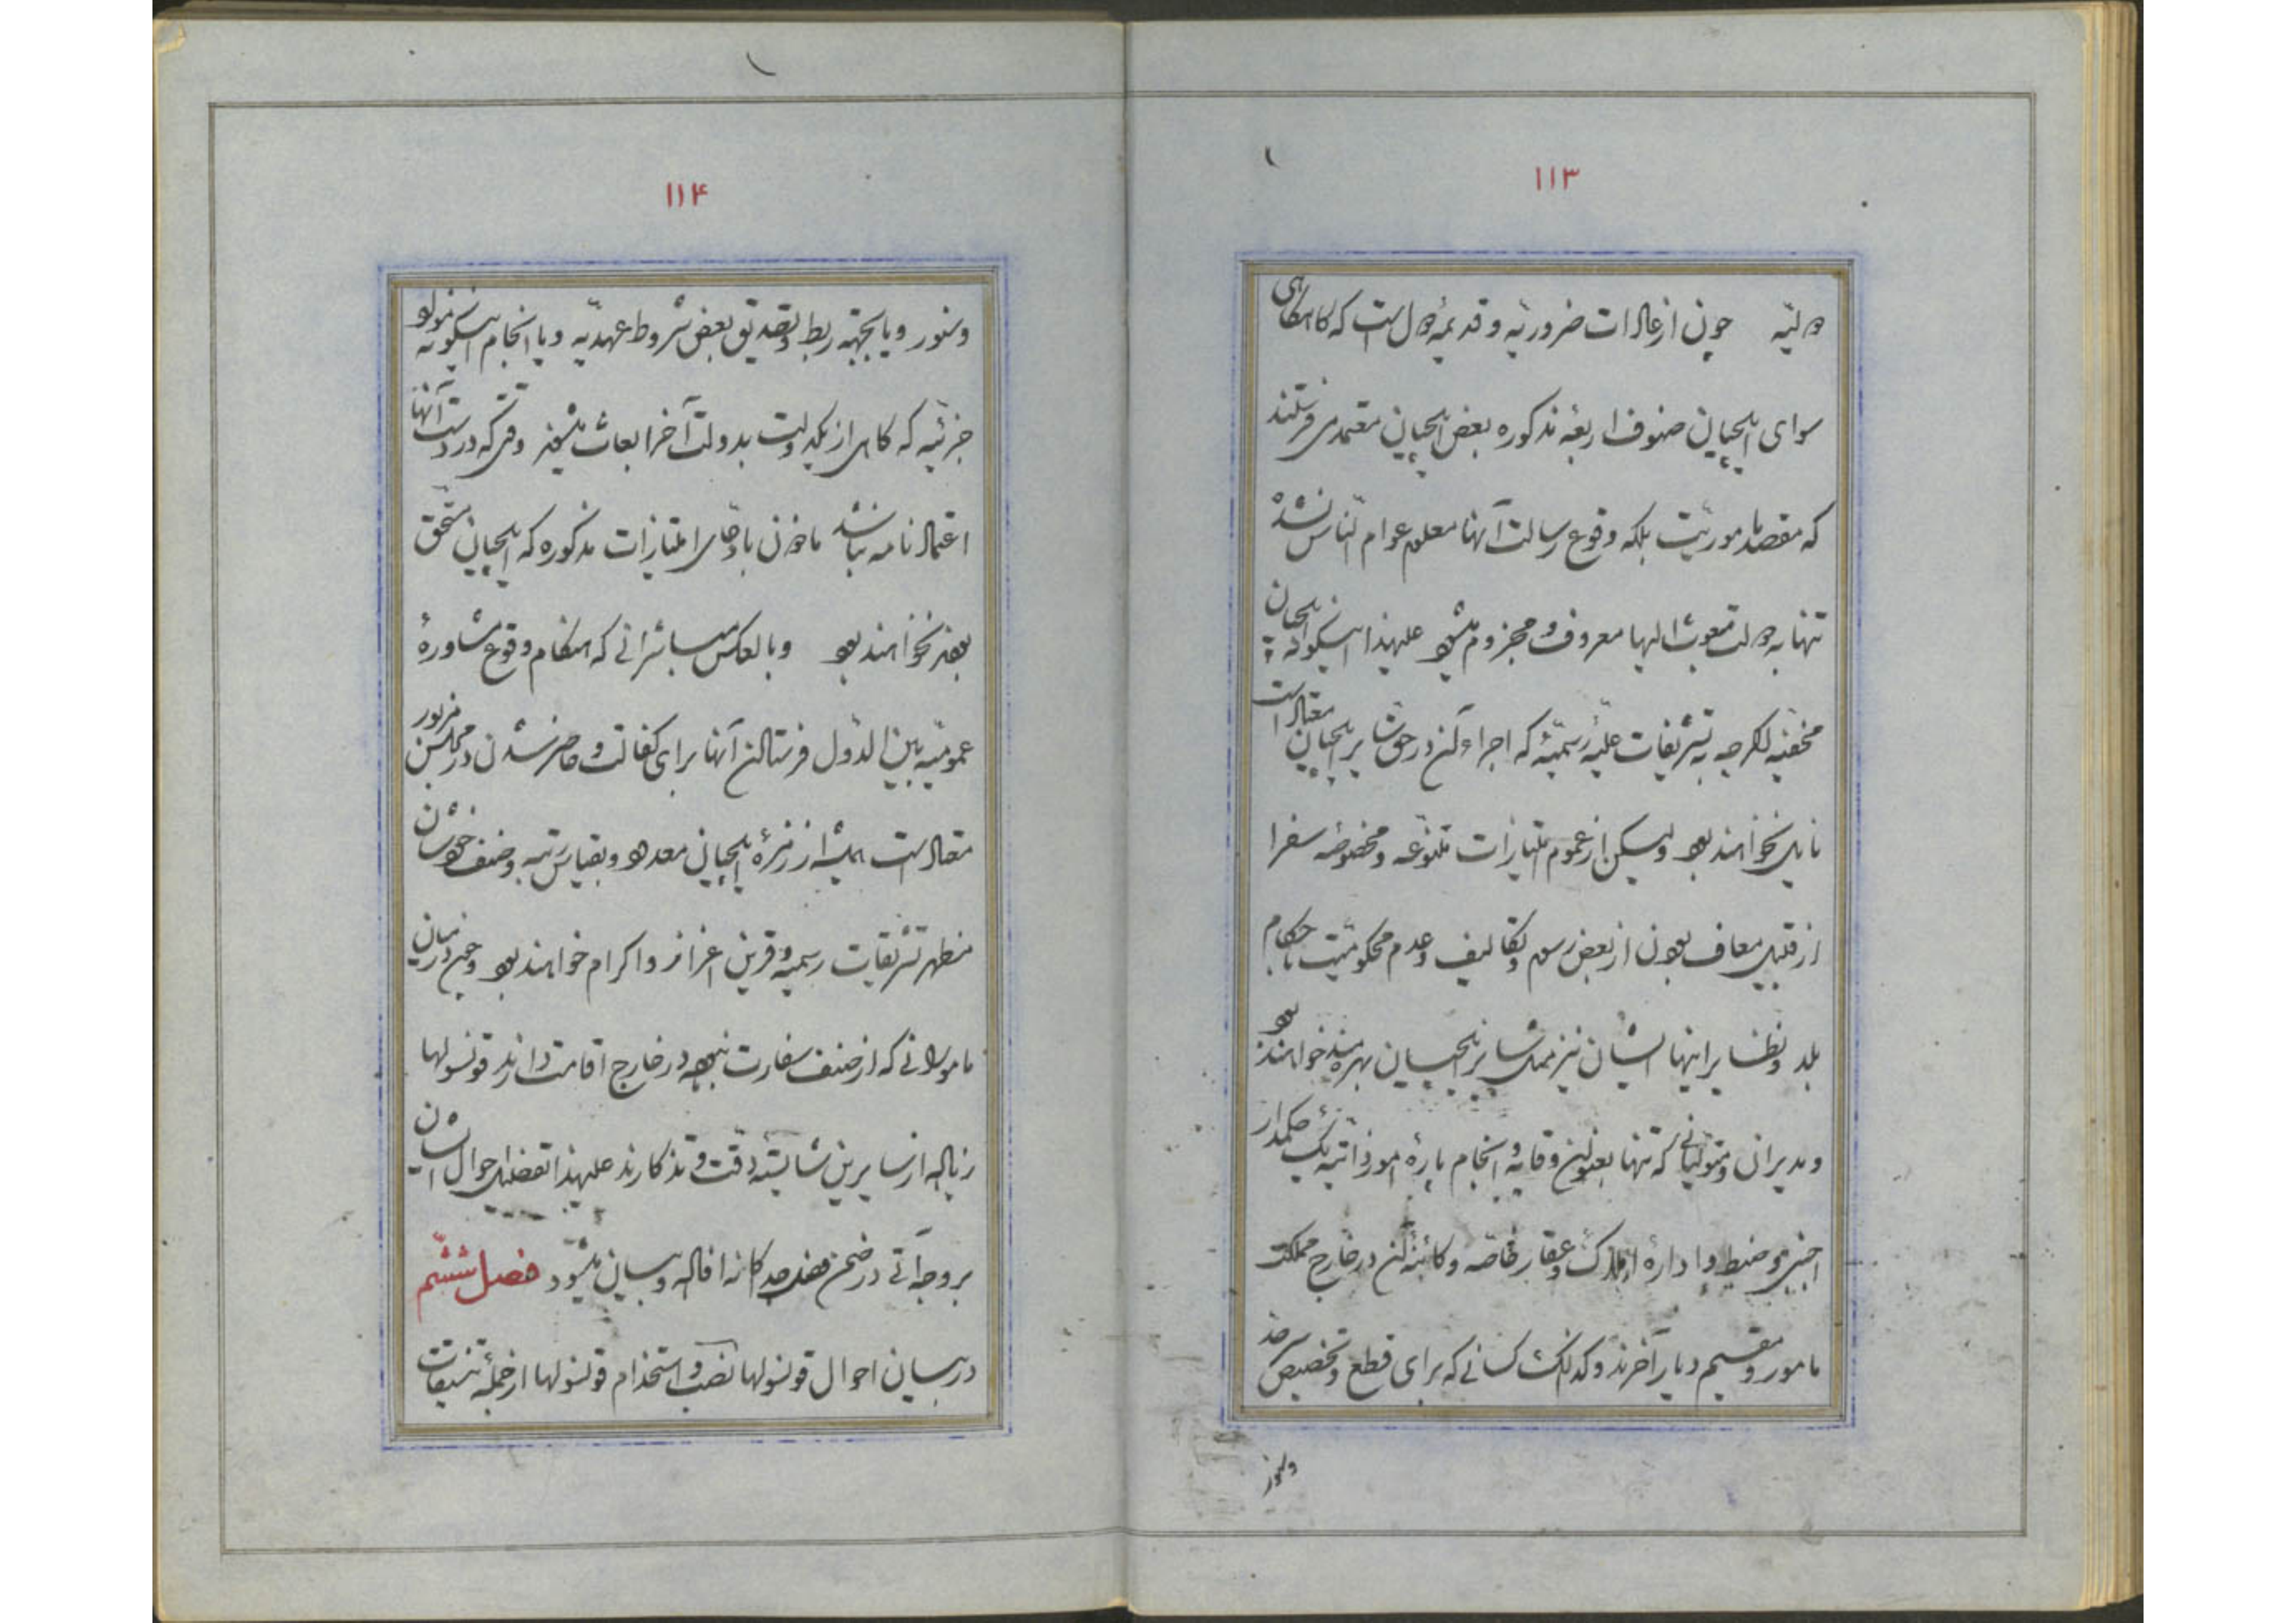 ۱۱۳
دولیّه چون از عادات ضروریّه و قدیمهٔ دول است که گاه گاهی
سوای ایلچیان صنوف اربعهٔ مذکوره بعض ایلچیان معتمد می فرستند
که مقصد مأموریّت بلکه وقوع رسالت آنها معلوم عوام النّاس نشده
تنها به دولت مبعوث الیها معروف و مجزوم میشود علیهذا اینگونه ایلچیان
مخفیّه اگرچه به تشریفات علنیّهٔ رسمیّهٔ که اجراء آن در حق سایر ایلچیان معتاد است
نایل نخواهند بود ولیکن از عموم امتیازات متنوّعه و مخصوصهٔ سفرا
از قبیل معاف بودن از بعض رسوم و تکالیف و عدم محکومیّت باحکام
بلد و نظایر اینها ایشان نیز مثل سایر ایلچیان بهره مند خواهند بود
و مدیران و متولیّانی که تنها بعنوان وقایه و انجام پارهٔ امور ذاتیّهٔ یک حکمدار
اجنبی و ضبط و ادارهٔ املاک و عقار خاصّه و کائنهٔ آن در خارج مملکت
مأمور و مقیم دیار آخرند و کذلک کسانی که برای قطع و تخصیص سرحد
وسنور
۱۱۴
وسنور و یا بجهة ربط و تصدیق بعض شروط عهدیّه و یا انجام اینگونه مواد
جزئیّه که گاهی از یکدولت بدولت آخر ابعاث میشوند وقتی که در دست آنها
اعتمادنامه نباشد مأذون بادّعای امتیازات مذکوره که ایلچیان مستحق
بودند نخواهند بود و بالعکس مباشرانی که هنگام وقوع مشاورهٔ
عمومیّهٔ بین الدّول فرستادن آنها برای کفالت و حاضر شدن در مجلس مزبور
معتاد است همیشه از زمرهٔ ایلچیان معدود و بقیاس رتبه و صنف خودشان
مظهر تشریفات رسمیّه و قرین اعزاز و اکرام خواهند بود و چون در میان
مأمورانی که از صنف سفارت نبوده در خارج اقامت دارند قونسولها
زیاده از سایرین شایستهٔ دقّت و تذکارند علیهذا تفصیل احوال ایشان
بر وجه آتی در ضمن فصل جداگانه افاده و بیان میشود فصل ششم
در بیان احوال قونسولها نصب و استخدام قونسولها از جملهٔ تنسیقات